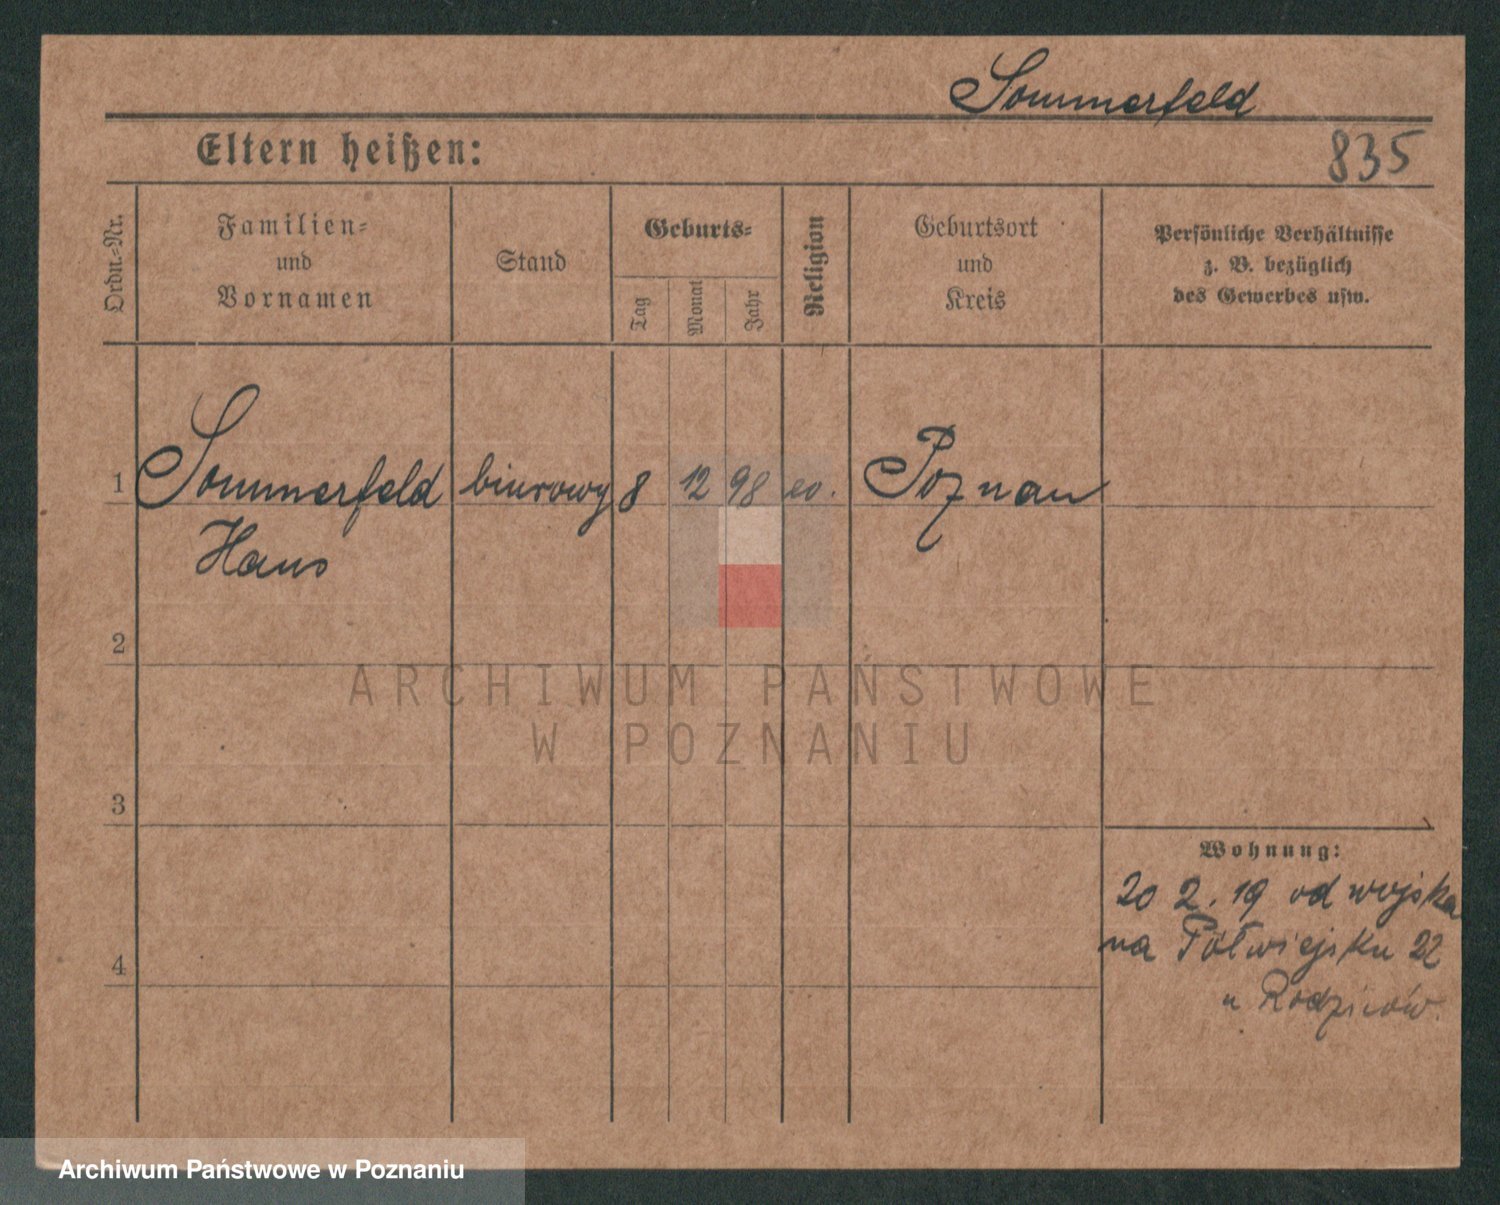 Sommerfeld
Eltern heißen:
835
Ordn.-Nr.
Familien-
und
Vornamen
Stand
Geburts-
Tag
Monat
Jahr
Religion
Geburtsort
und
Kreis
Persönliche Verhältnisse
z. B. bezüglich
des Gewerbes usw.
1 Sommerfeld biurowy 8 12 98 ev. Poznan
Hans
2
ARCHIWUM PAŃSTWOWE
W POZNANIU
3
Wohnung:
20 2. 19 od wojska
na Półwiejsku 22
u Rodziców.
4
Archiwum Państwowe w Poznaniu